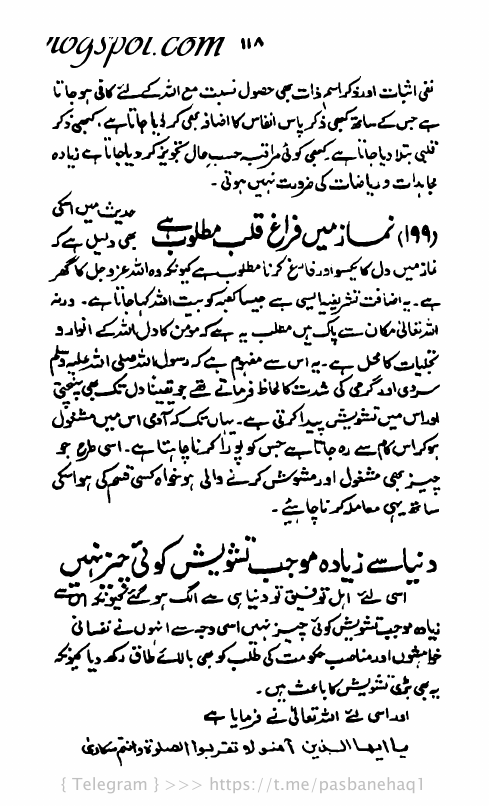 logspot.com ۱۱۸
نفی اثبات اور ذکر اسم ذات بھی حصول نسبت مع اللہ کے لئے کافی ہو جاتا
ہے جس کے ساتھ کبھی ذکر پاس انفاس کا اضافہ بھی کر لیا جاتا ہے، کبھی ذکر
قلبی بتلا دیا جاتا ہے۔ کبھی کوئی مراقبہ حسب حال تجویز کر دیا جاتا ہے زیادہ
مجاہدات و ریاضات کی ضرورت نہیں ہوتی۔
(۱۹۹) نماز میں فراغ قلب مطلوب ہے حدیث میں اسکی
بھی دلیل ہے کہ
نماز میں دل کا یکسو اور فارغ کرنا مطلوب ہے کیونکہ وہ اللہ عزوجل کا گھر
ہے۔ یہ اضافت تشریفیہ ایسی ہے جیسا کعبہ کو بیت اللہ کہا جاتا ہے۔ ورنہ
اللہ تعالیٰ مکان سے پاک ہیں مطلب یہ ہے کہ مؤمن کا دل اللہ کے انوار و
تجلیات کا محل ہے۔ یہ اس سے مفہوم ہے کہ رسول اللہ صلی اللہ علیہ وسلم
سردی اور گرمی کی شدت کا لحاظ فرماتے تھے جو یقینا دل تک بھی پہنچتی
اور اس میں تشویش پیدا کرتی ہے۔ یہاں تک کہ آدمی اس میں مشغول
ہو کر اس کام سے رہ جاتا ہے جس کو پورا کرنا چاہتا ہے۔ اسی طرح جو
چیز بھی مشغول اور مشوش کرنے والی ہو خواہ کسی قسم کی ہو اسکے
ساتھ یہی معاملہ کرنا چاہیئے۔
دنیا سے زیادہ موجب تشویش کوئی چیز نہیں
اسی لئے اہل توفیق تو دنیا ہی سے الگ ہو گئے کیونکہ اس سے
زیادہ موجب تشویش کوئی چیز نہیں اسی وجہ سے انہوں نے نفسانی
خواہشوں اور مناصب حکومت کی طلب کو بھی بالائے طاق رکھ دیا کیونکہ
یہ بھی بڑی تشویش کا باعث ہیں۔
اور اسی لئے اللہ تعالیٰ نے فرمایا ہے
یا ایھا الذین آمنوا لا تقربوا الصلوۃ وانتم سکاریٰ
{ Telegram } >>> https://t.me/pasbanehaq1